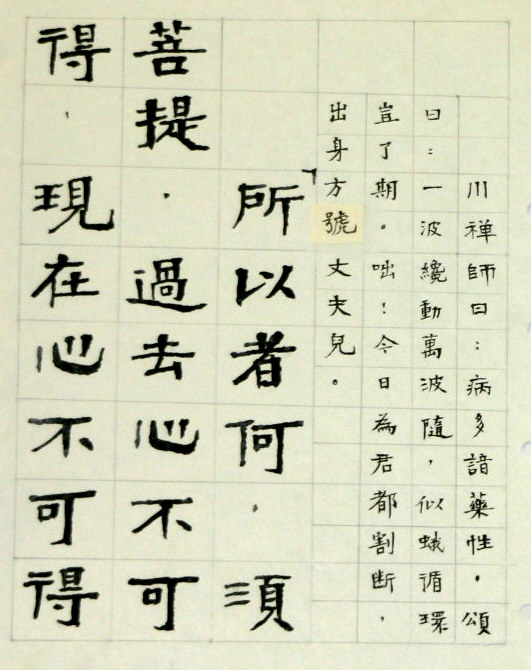 川禅師曰：病多諳藥性，頌
曰：一波纔動萬波隨，似蛾循環
豈了期。咄！今日為君都割斷，
出身方號丈夫兒。
「所以者何，須
菩提，過去心不可
得，現在心不可得